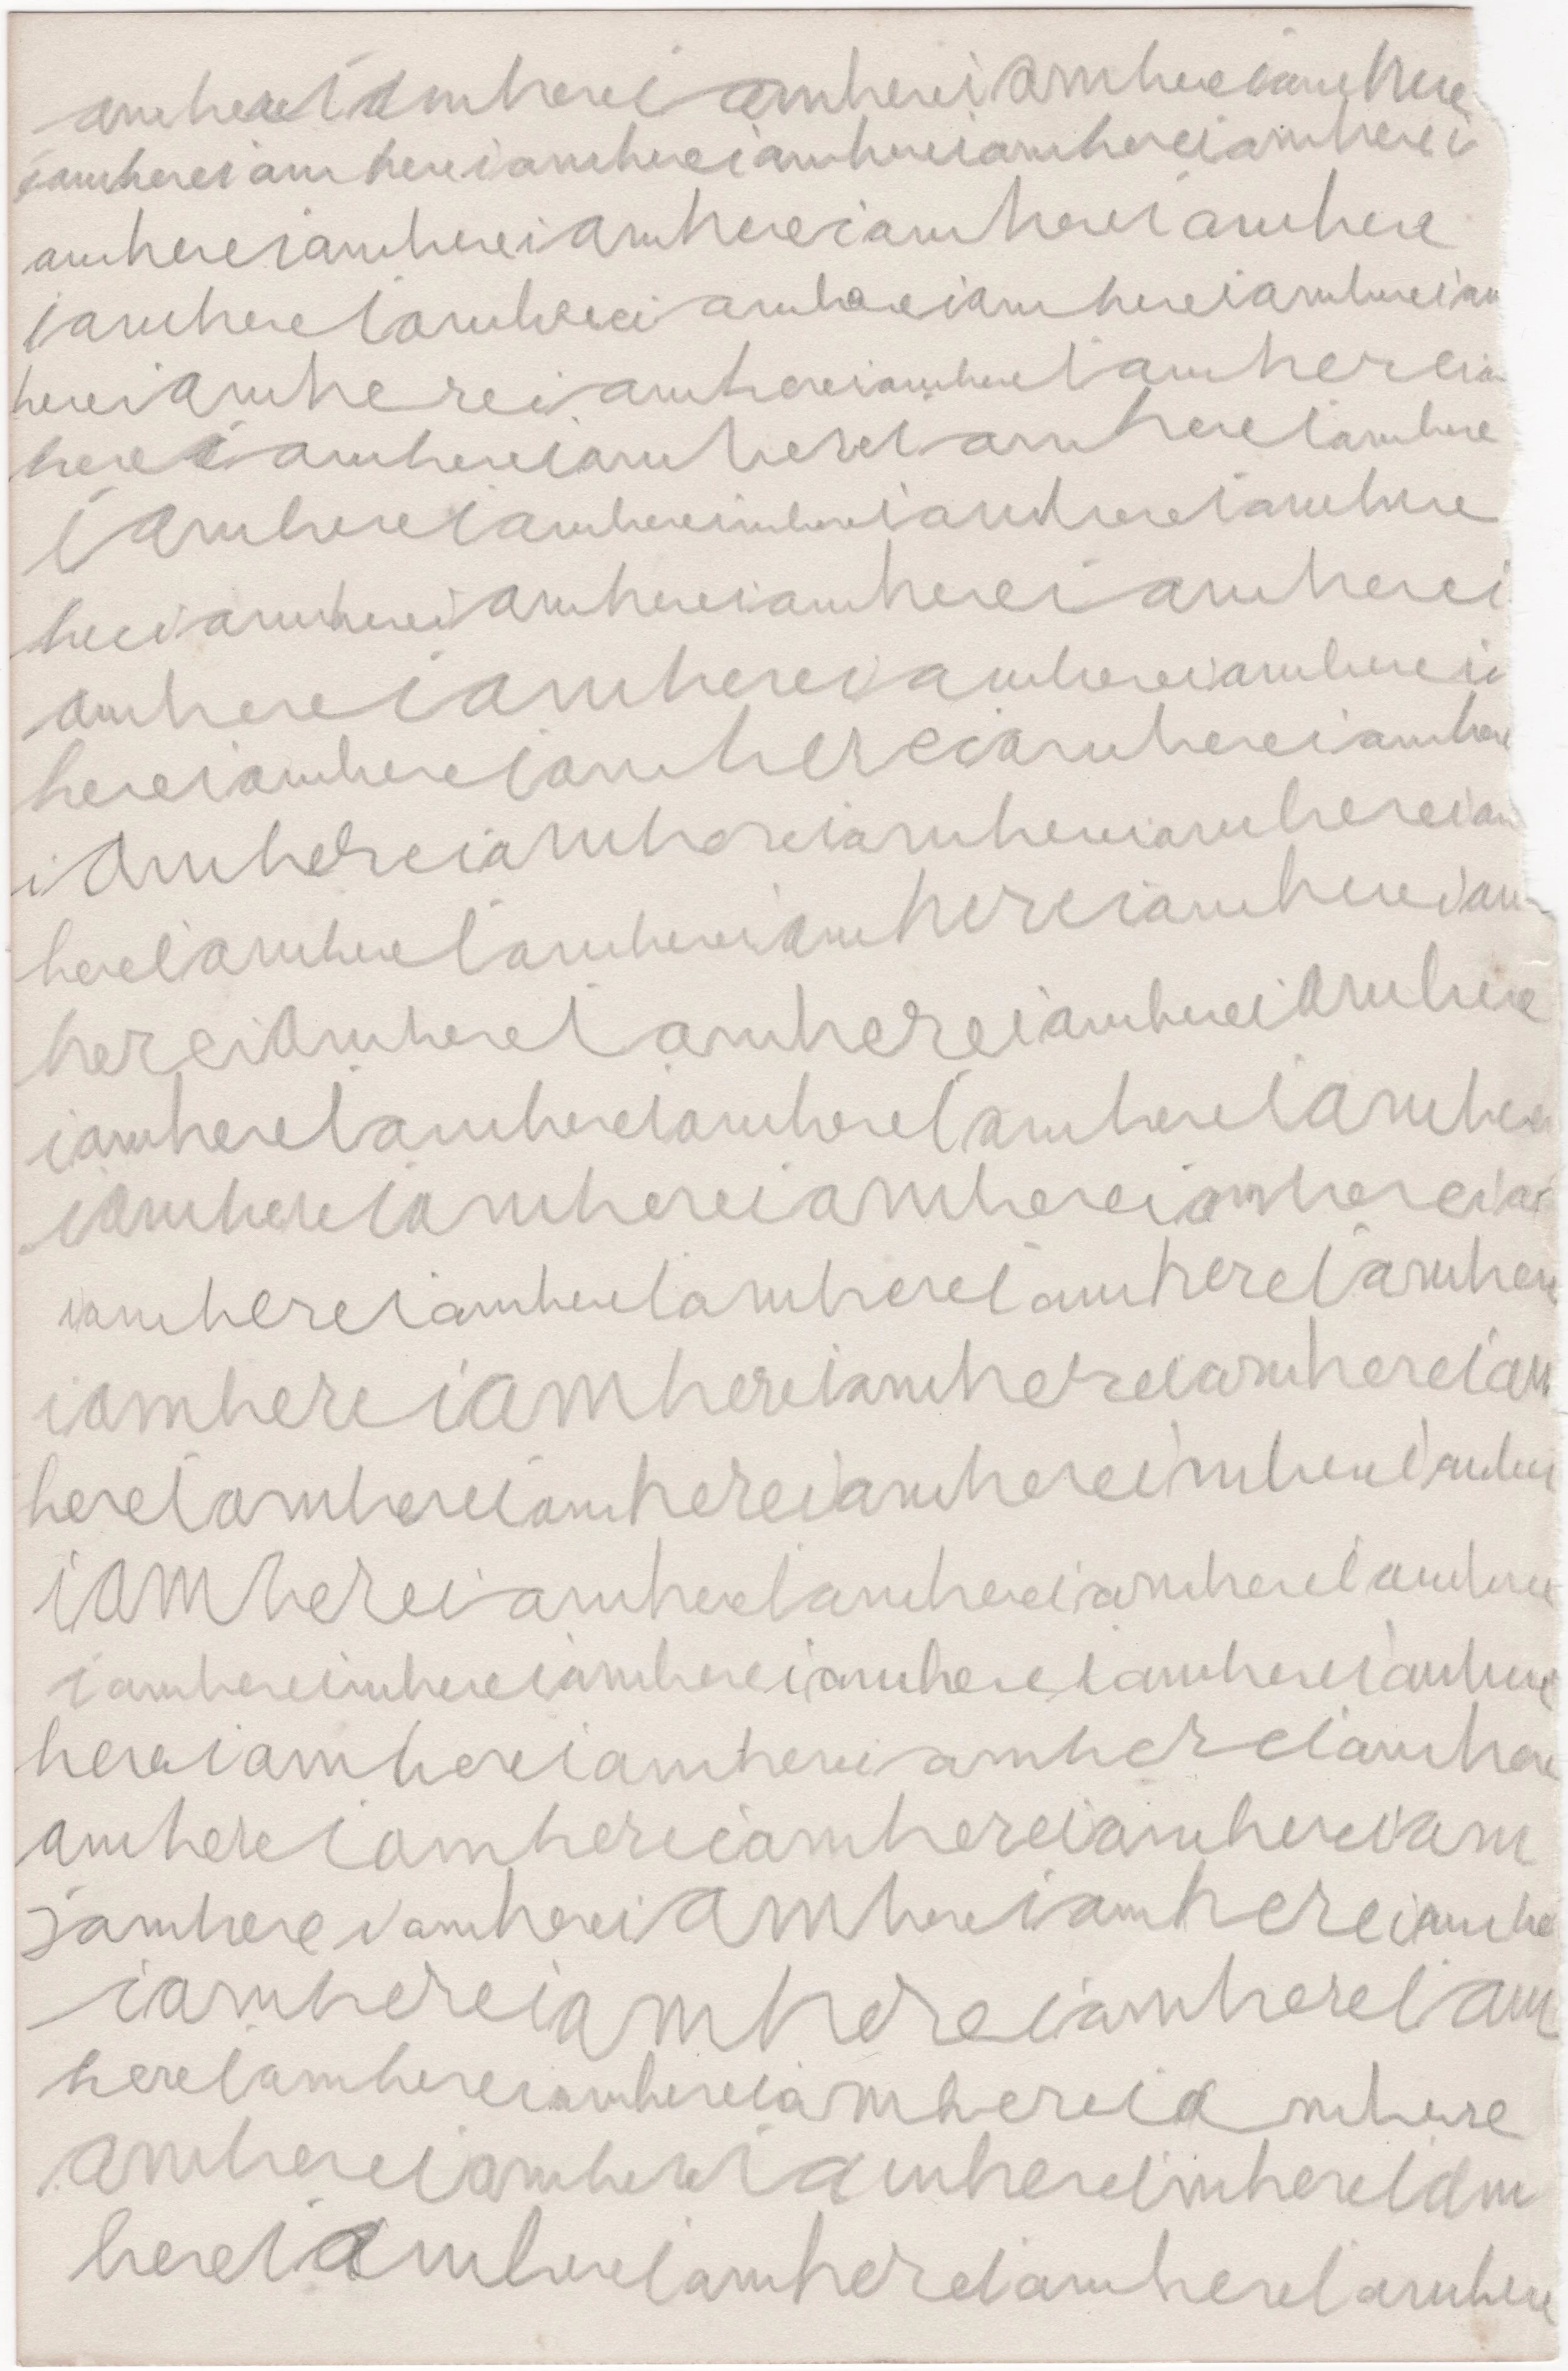 amhereiamhereiamhereiamhereiamhere
iamhereiamhereiamhereiamhereiamhereiamherei
amhereiamhereiamhereiamhereiamhere
iamhereiamhereiamhereiamhereiamhereiam
hereiamhereiamhereiamhereiamhereia
hereiamhereiamhereiamhereiamhere
iamhereiamhereimhereiamhereiamhere
heeiamhereiamhereiamhereiamherei
amhereiamhereiamhereiamherei
hereiamhereiamhereiamhereiamhere
iamhereiamhereiamhereiamhereiam
hereiamhereiamhereiamhereiamhereiam
hereiamhereiamhereiamhereiamhere
iamhereiamhereiamhereiamhereiamhere
iamhereiamhereiamhereiamhereia
iamhereiamhereiamhereiamhereiamhere
iamhereiamhereiamhereiamhereiam
hereiamhereiamhereiamhereimhereiamhere
iamhereiamhereiamhereiamhereiamhere
iamhereimhereiamhereiamhereiamhereiamhere
hereiamhereiamhereiamhereiamhere
amhereiamhereiamhereiamhereiam
iamhereiamhereiamhereiamhereiamhe
iamhereiamhereiamhereiam
hereiamhereiamhereiamhereiamhere
amhereiamhereiamhereimhereiam
hereiamhereiamhereiamhereiamhere